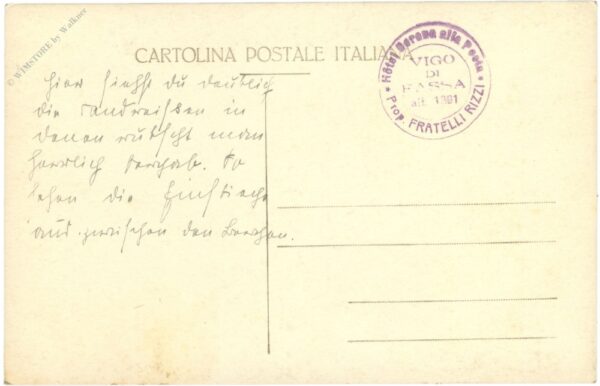 © WIMSTORE by Walkner
CARTOLINA POSTALE ITALIANA
Hôtel Corona alla Posta
VIGO
DI
FASSA
alt. 1391
Prop. FRATELLI RIZZI
Hier siehst du deutlich
die Randreissen in
denen rutscht man
herrlich bergab. So
sehen die Einstiege
aus zwischen den Bergen.